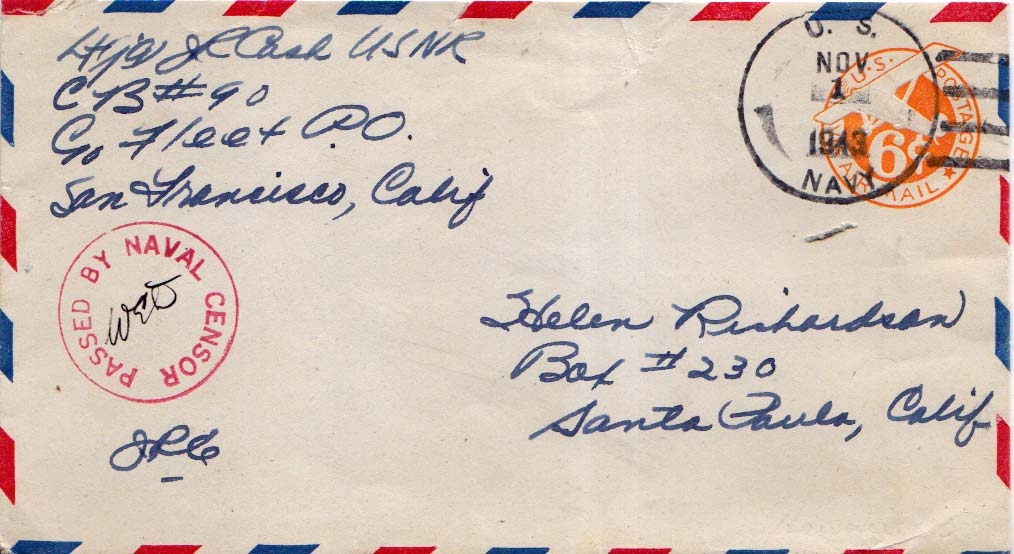 Lt(jg) JR Cash USNR
CB # 90
C/o Fleet P.O.
San Francisco, Calif
U. S.
NOV
1
1943
NAVY
U.S. POSTAGE
6¢
AIR MAIL
PASSED BY NAVAL CENSOR
Helen Richardson
Box # 230
Santa Paula, Calif
JRC